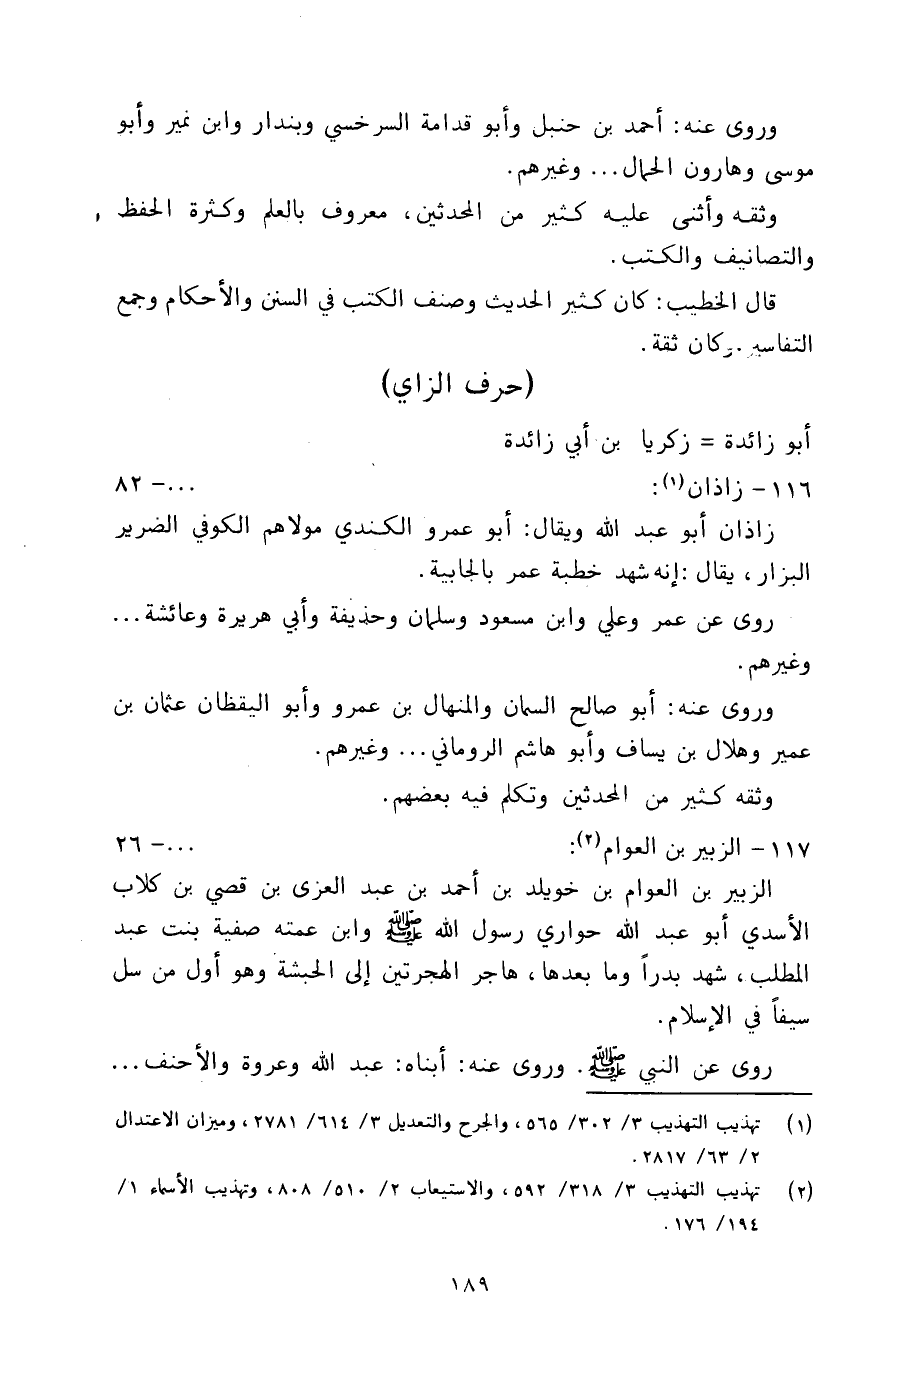 وروى عنه: أحمد بن حنبل وأبو قدامة السرخسي وبندار وابن نمير وأبو
موسى وهارون الحمال... وغيرهم.
وثقه وأثنى عليه كثير من المحدثين، معروف بالعلم وكثرة الحفظ،
والتصانيف والكتب.
قال الخطيب: كان كثير الحديث وصنف الكتب في السنن والأحكام وجمع
التفاسير.. وكان ثقة.
(حرف الزاي)
أبو زائدة = زكريا بن أبي زائدة
١١٦ - زاذان(١): ...- ٨٢
زاذان أبو عبد الله ويقال: أبو عمرو الكندي مولاهم الكوفي الضرير
البزار، يقال: إنه شهد خطبة عمر بالجابية.
روى عن عمر وعلي وابن مسعود وسلمان وحذيفة وأبي هريرة وعائشة...
وغيرهم.
وروى عنه: أبو صالح السمان والمنهال بن عمرو وأبو اليقظان عثمان بن
عمير وهلال بن يساف وأبو هاشم الروماني... وغيرهم.
وثقه كثير من المحدثين وتكلم فيه بعضهم.
١١٧ - الزبير بن العوام(٢): ...- ٢٦
الزبير بن العوام بن خويلد بن أحمد بن عبد العزى بن قصي بن كلاب
الأسدي أبو عبد الله حواري رسول الله ﷺ وابن عمته صفية بنت عبد
المطلب، شهد بدراً وما بعدها، هاجر الهجرتين إلى الحبشة وهو أول من سل
سيفاً في الإسلام.
روى عن النبي ﷺ. وروى عنه: أبناه: عبد الله وعروة والأحنف...
(١) تهذيب التهذيب ٣/ ٣٠٢/ ٥٦٥، والجرح والتعديل ٣/ ٦١٤/ ٢٧٨١، وميزان الاعتدال
٢/ ٦٣/ ٢٨١٧.
(٢) تهذيب التهذيب ٣/ ٣١٨/ ٥٩٢، والاستيعاب ٢/ ٥١٠/ ٨٠٨، وتهذيب الأسماء ١/
١٩٤/ ١٧٦.
١٨٩